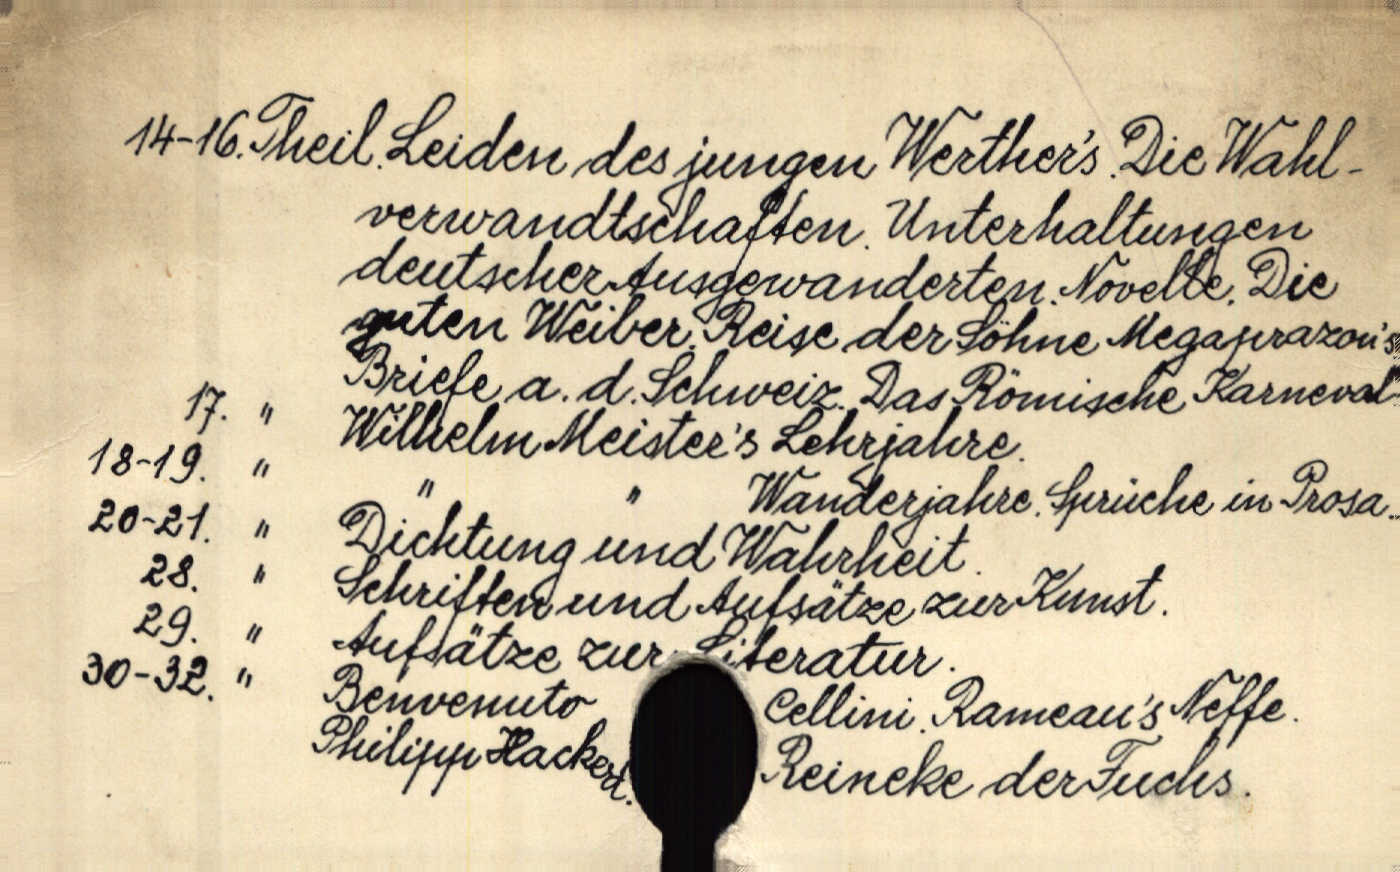 14-16. Theil. Leiden des jungen Werther's. Die Wahl-
verwandtschaften. Unterhaltungen
deutscher Ausgewanderten. Novelle. Die
guten Weiber. Reise der Söhne Megaprazon's
Briefe a. d. Schweiz. Das Römische Karneval
17. " Wilhelm Meister's Lehrjahre.
18-19. " " " Wanderjahre. Sprüche in Prosa.
20-21. " Dichtung und Wahrheit.
28. " Schriften und Aufsätze zur Kunst.
29. " Aufsätze zur Literatur.
30-32. " Benvenuto Cellini. Rameau's Neffe.
Philipp Hackert. Reineke der Fuchs.